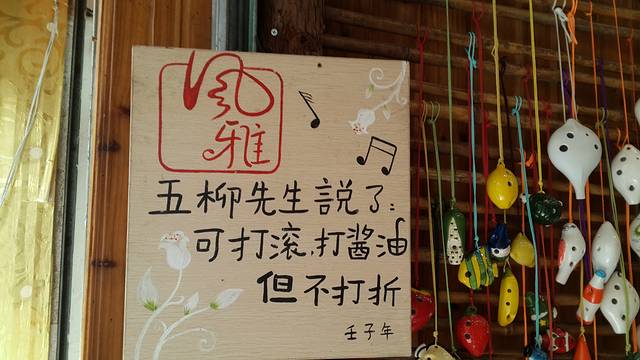 風
雅
五柳先生説了:
可打滚,打醬油
但不打折
壬子年